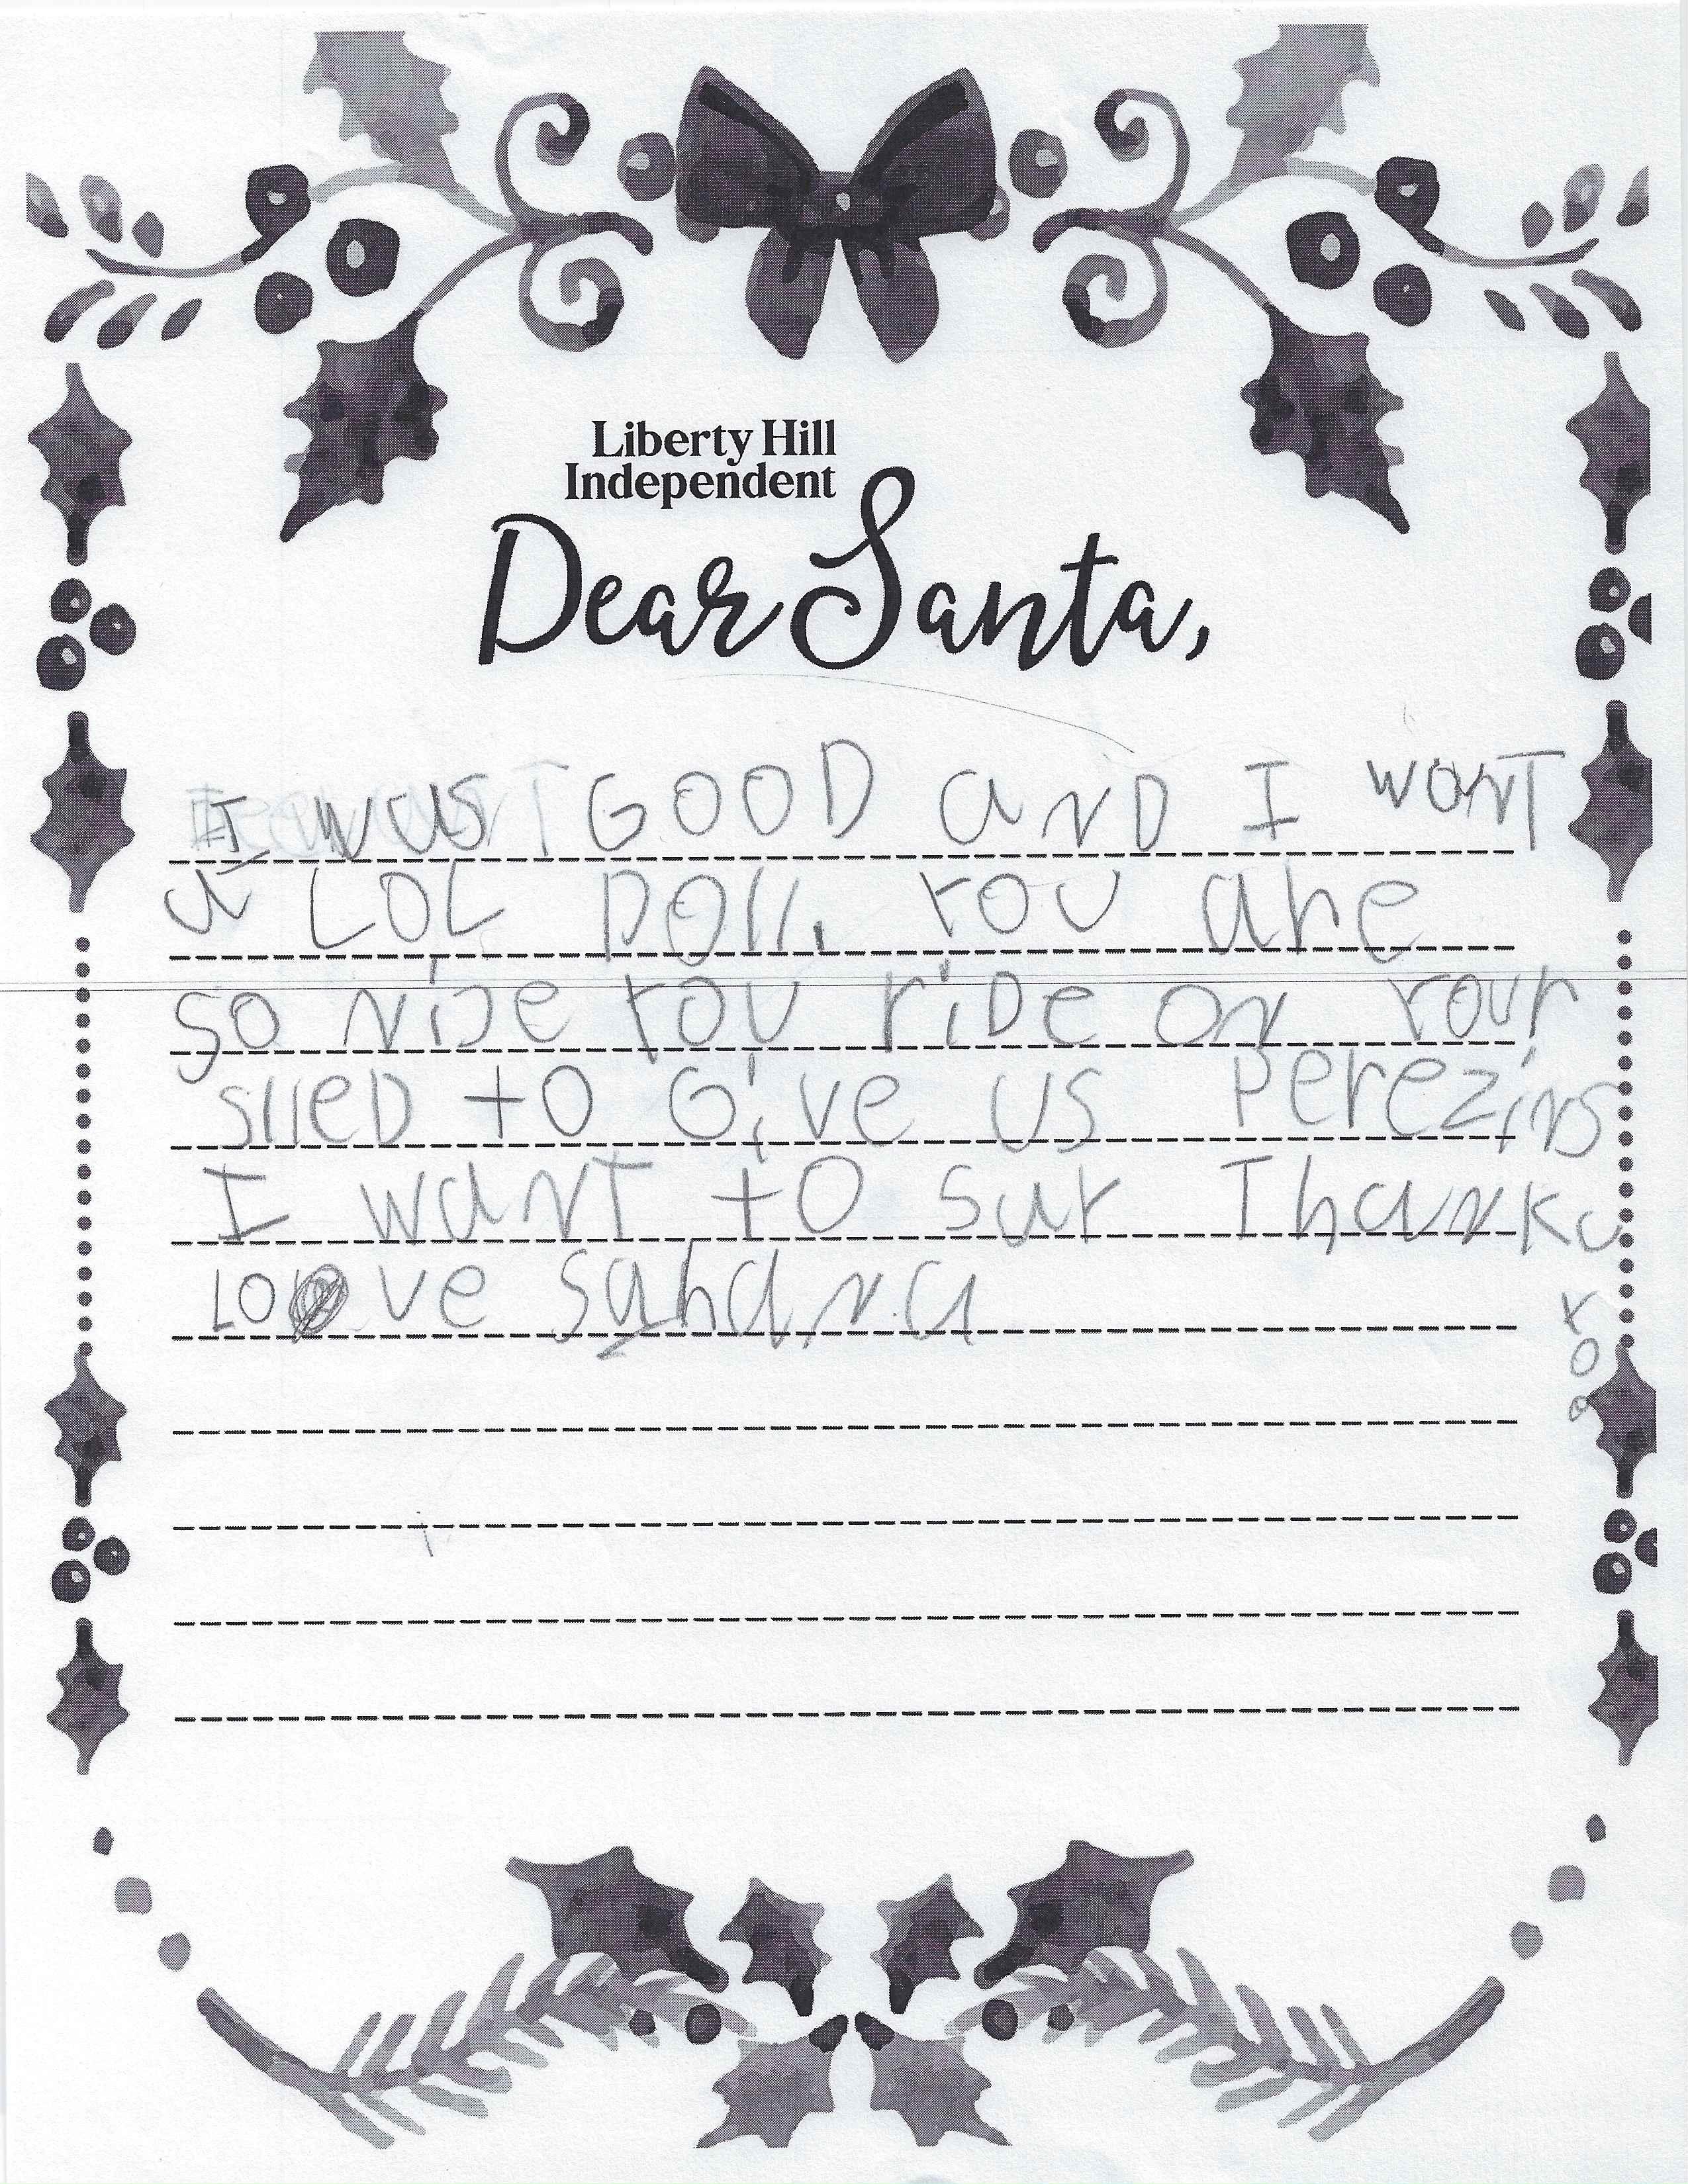 Liberty Hill
Independent
Dear Santa,
I was GOOD anD I wanT
a LOL Doll. You are
so nice you riDe on your
slleD to Give us Perezins
I wanT to say Thank
you
Love Sahana